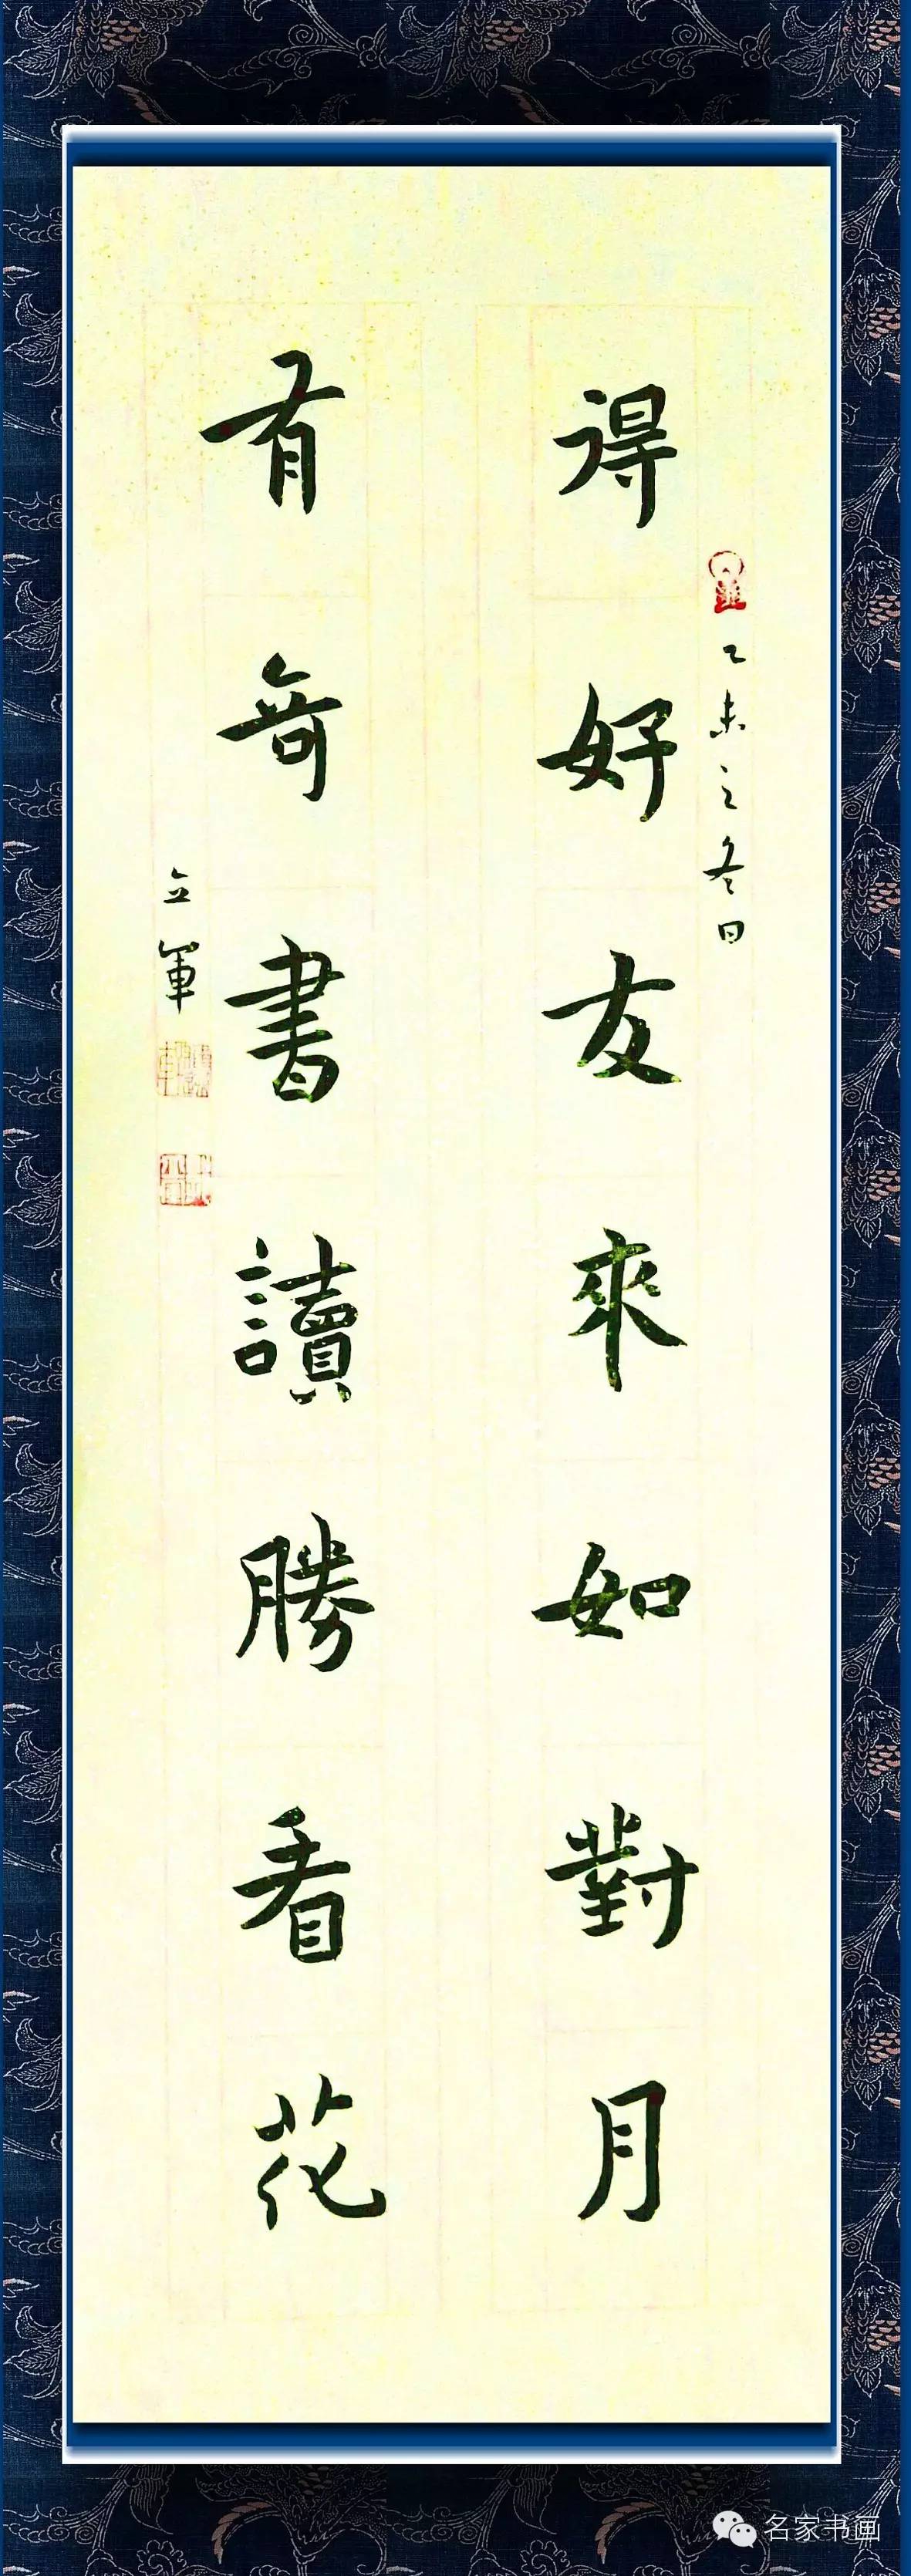 得好友來如對月
乙未之冬日
有奇書讀勝看花
立軍
名家书画